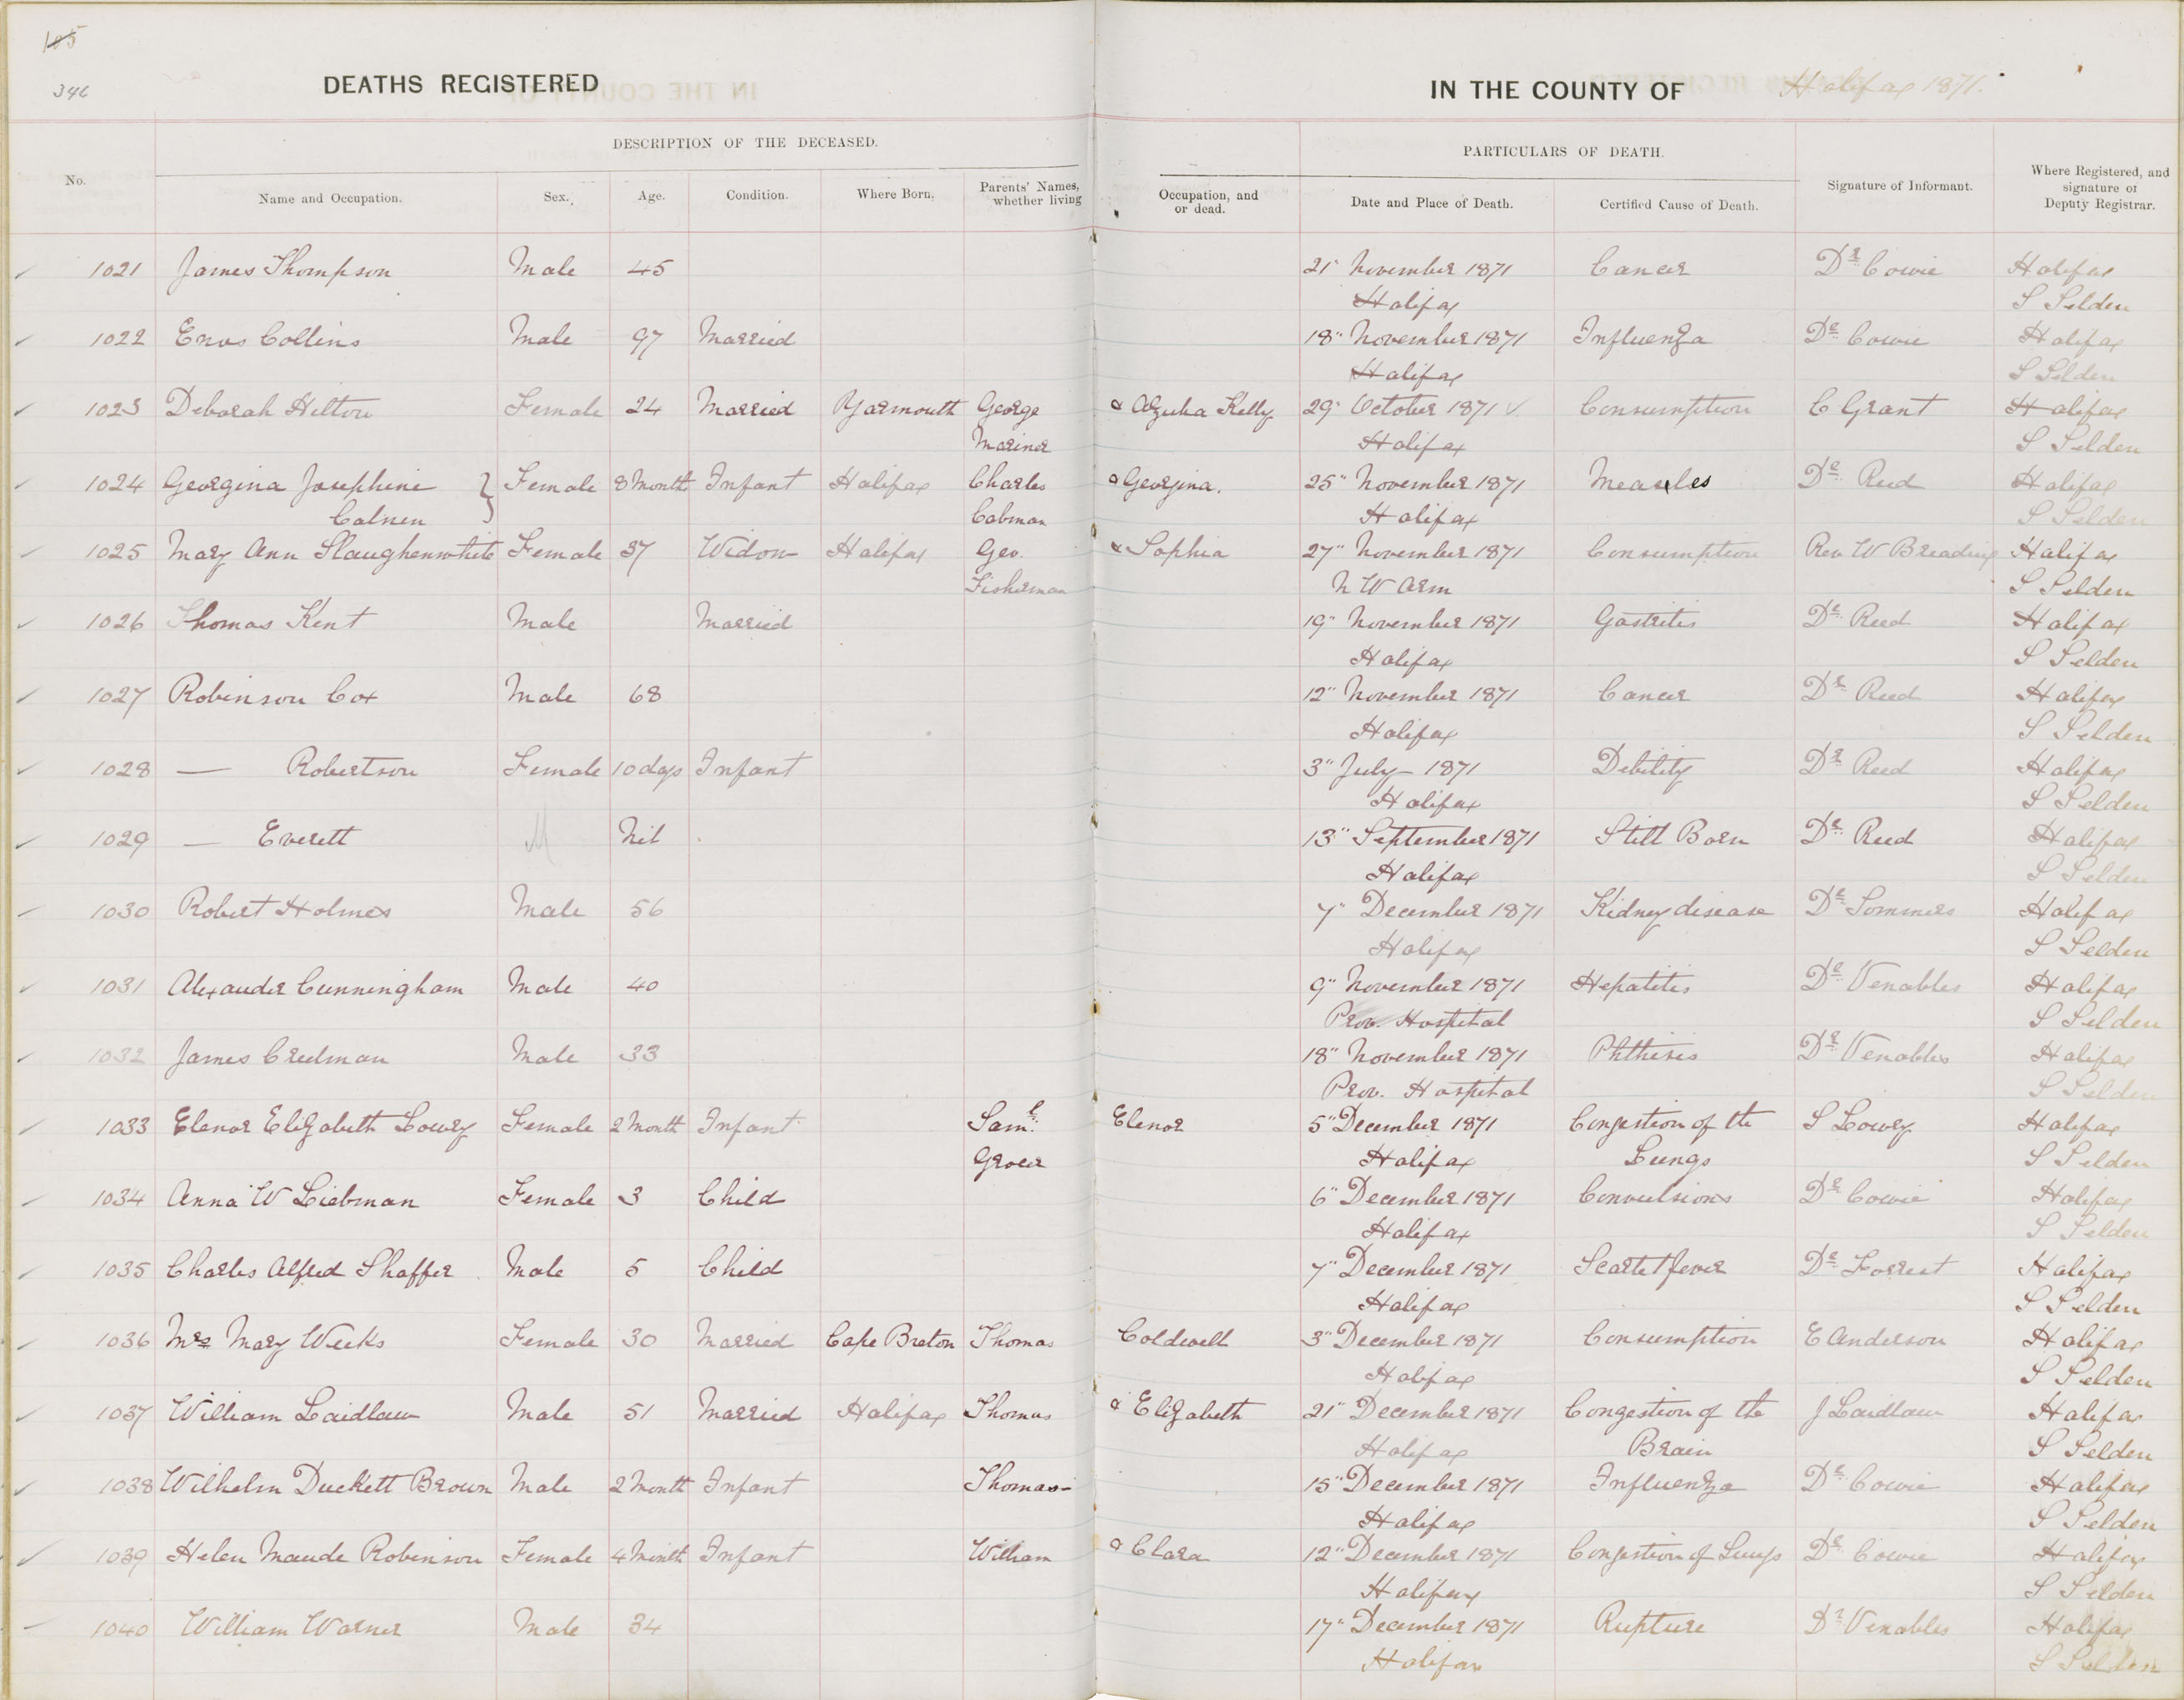 105
346
DEATHS REGISTERED
IN THE COUNTY OF Halifax 1871.
DESCRIPTION OF THE DECEASED.
PARTICULARS OF DEATH.
No.
Name and Occupation.
Sex.
Age.
Condition.
Where Born.
Parents' Names, whether living
Occupation, and or dead.
Date and Place of Death.
Certified Cause of Death.
Signature of Informant.
Where Registered, and signature of Deputy Registrar.
1021 James Thompson Male 45 21" November 1871 Cancer Dr. Cowie Halifax
Halifax S Selden
1022 Enos Collins Male 97 Married 18" November 1871 Influenza Dr. Cowie Halifax
Halifax S Selden
1023 Deborah Hilton Female 24 Married Yarmouth George & Azuba Kelly 29" October 1871 Consumption C Grant Halifax
Mariner Halifax S Selden
1024 Georgina Josephine Female 8 Month Infant Halifax Charles & Georgina. 25" November 1871 Measles Dr. Reed Halifax
Calnen Cabman Halifax S Selden
1025 Mary Ann Slaughenwhite Female 37 Widow Halifax Geo. & Sophia 27" November 1871 Consumption Rev W Breading Halifax
Fisherman N W Arm S Selden
1026 Thomas Kent Male Married 19" November 1871 Gastritis Dr. Reed Halifax
Halifax S Selden
1027 Robinson Cox Male 68 12" November 1871 Cancer Dr. Reed Halifax
Halifax S Selden
1028 — Robertson Female 10 days Infant 3" July 1871 Debility Dr. Reed Halifax
Halifax S Selden
1029 — Everett M Nil 13" September 1871 Still Born Dr. Reed Halifax
Halifax S Selden
1030 Robert Holmes Male 56 7" December 1871 Kidney disease Dr. Sommers Halifax
Halifax S Selden
1031 Alexander Cunningham Male 40 9" November 1871 Hepatitis Dr. Venables Halifax
Prov. Hospital S Selden
1032 James Creelman Male 33 18" November 1871 Phthisis Dr. Venables Halifax
Prov. Hospital S Selden
1033 Elenor Elizabeth Lowry Female 2 Month Infant Saml. Elenor 5" December 1871 Congestion of the S Lowry Halifax
Grocer Halifax Lungs S Selden
1034 Anna W Liebman Female 3 Child 6" December 1871 Convulsions Dr. Cowie Halifax
Halifax S Selden
1035 Charles Alfred Shaffer Male 5 Child 7" December 1871 Scarlet fever Dr. Forrest Halifax
Halifax S Selden
1036 Mrs Mary Weeks Female 30 Married Cape Breton Thomas Coldwell 3" December 1871 Consumption E Anderson Halifax
Halifax S Selden
1037 William Laidlaw Male 51 Married Halifax Thomas & Elizabeth 21" December 1871 Congestion of the J Laidlaw Halifax
Halifax Brain S Selden
1038 Wilhelm Duckett Brown Male 2 Month Infant Thomas 15" December 1871 Influenza Dr. Cowie Halifax
Halifax S Selden
1039 Helen Maude Robinson Female 4 Month Infant William & Clara 12" December 1871 Congestion of Lungs Dr. Cowie Halifax
Halifax S Selden
1040 William Warner Male 34 17" December 1871 Rupture Dr. Venables Halifax
Halifax S Selden